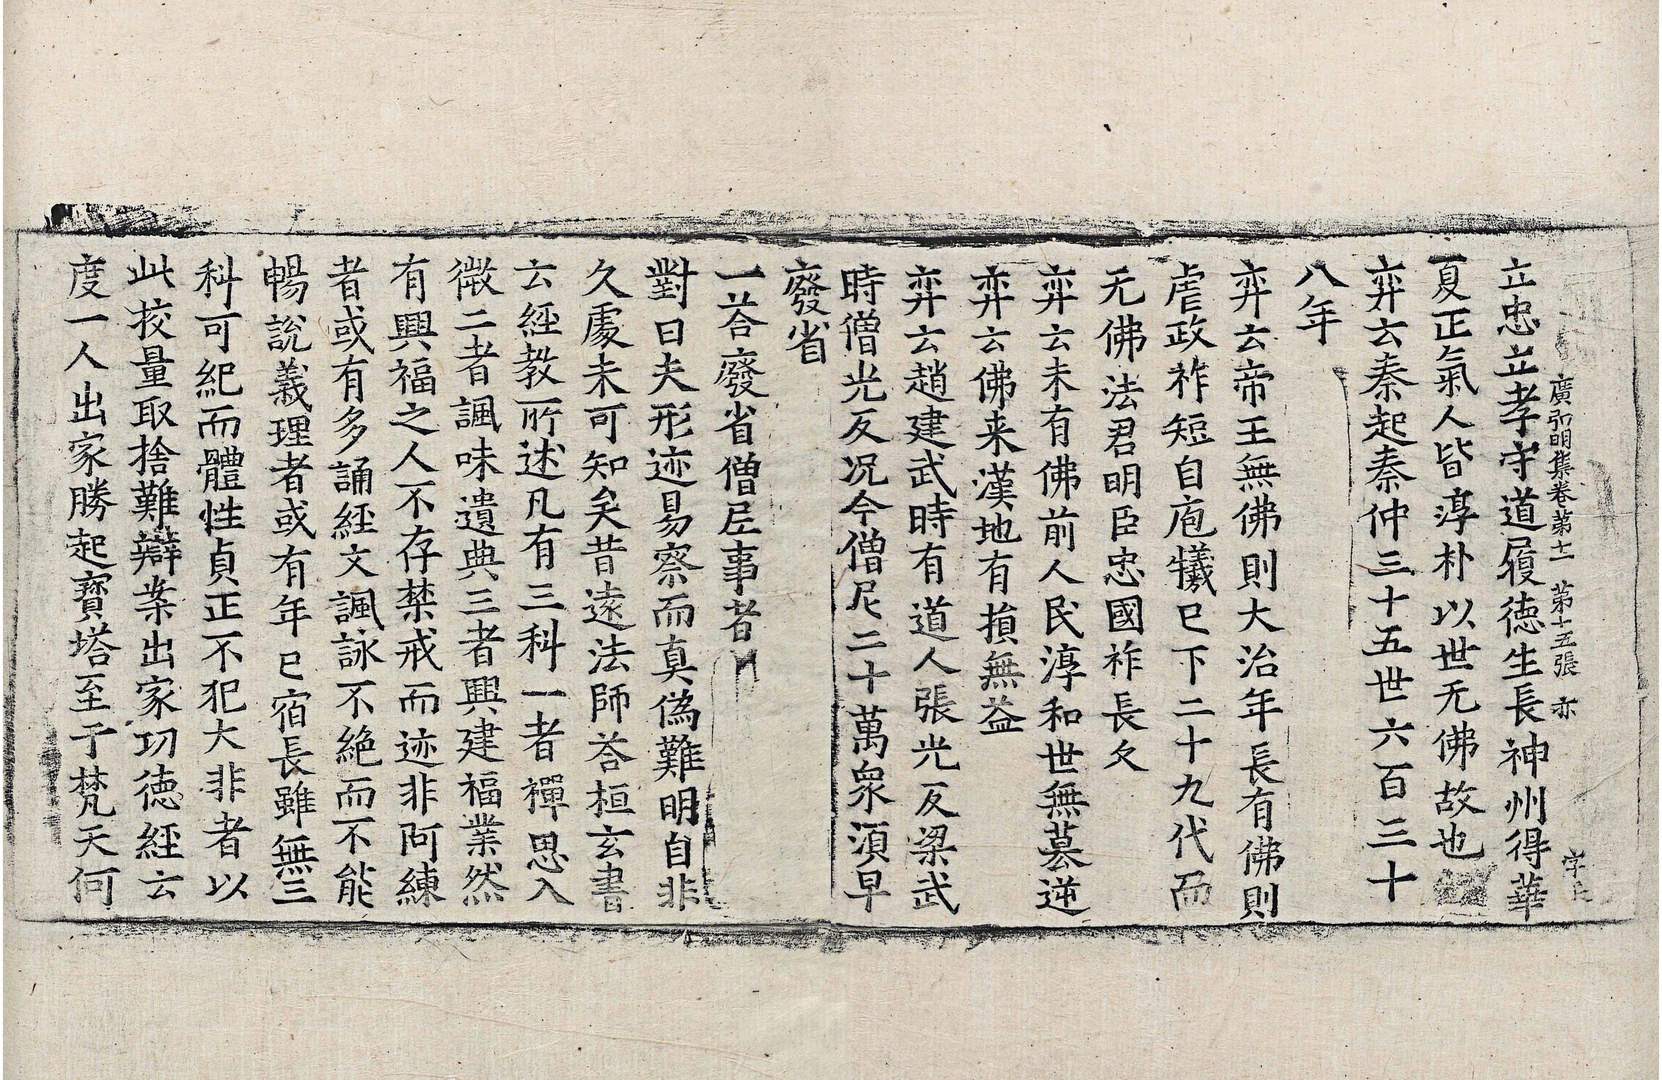 廣弘明集卷第十一　第十五張　亦
立忠立孝守道履德生長神州得華
夏正氣人皆淳朴以世无佛故也
弈云秦起秦仲三十五世六百三十
八年
弈云帝王無佛則大治年長有佛則
虐政祚短自庖犧巳下二十九代而
无佛法君明臣忠國祚長久
弈云未有佛前人民淳和世無篡逆
弈云佛来漢地有損無益
弈云趙建武時有道人張光反梁武
時僧光反况今僧尼二十萬衆須早
廢省
一荅廢省僧尼事者
對曰夫形迹易察而真偽難明自非
久處未可知矣昔遠法師荅桓玄書
云經教所述凡有三科一者禪思入
微二者諷味遺典三者興建福業然
有興福之人不存禁戒而迹非阿練
者或有多誦經文諷詠不絶而不能
暢說義理者或有年巳宿長雖無三
科可紀而體性貞正不犯大非者以
此挍量取捨難辯案出家功德經云
度一人出家勝起寶塔至于梵天何